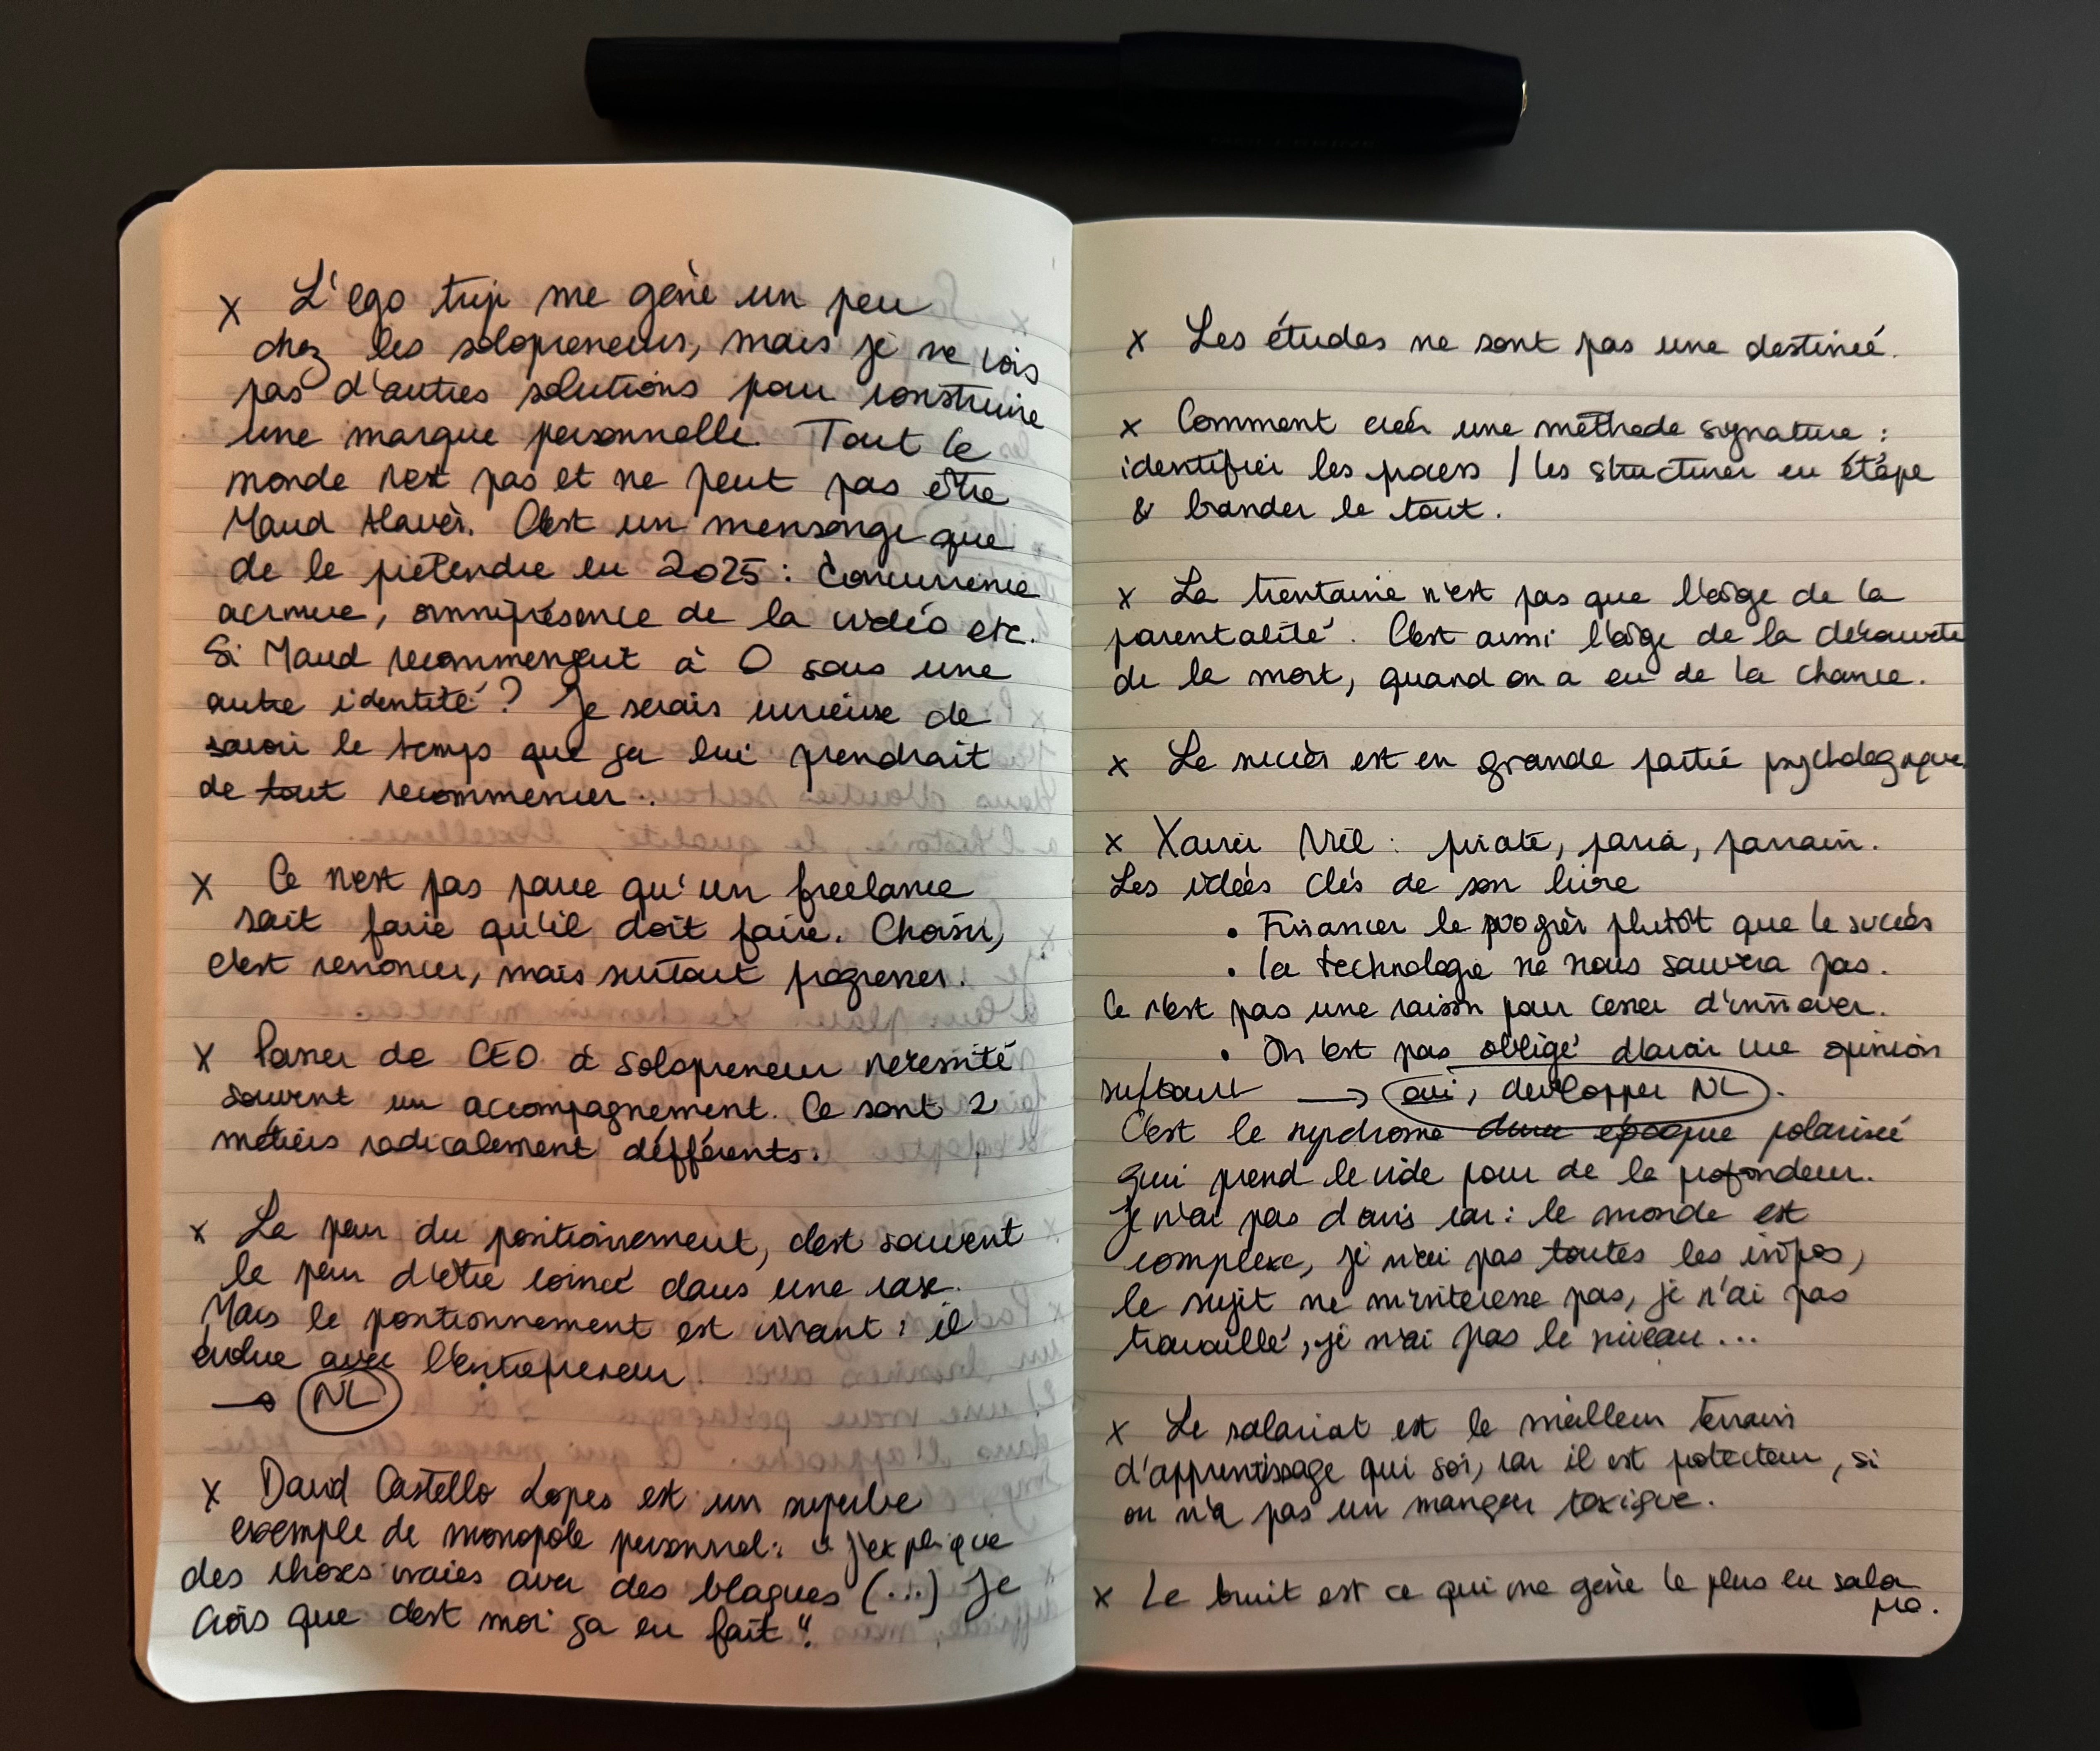 x L'ego trip me gêne un peu
chez les solopreneurs, mais je ne vois
pas d'autres solutions pour construire
une marque personnelle. Tout le
monde n'est pas et ne peut pas être
Maud Alavès. C'est un mensonge que
de le prétendre en 2025 : concurrence
accrue, omniprésence de la vidéo etc.
Si Maud recommençait à 0 sous une
autre identité ? Je serais curieuse de
savoir le temps que ça lui prendrait
de tout recommencer.
x Ce n'est pas parce qu'un freelance
sait faire qu'il doit faire. Choisir,
c'est renoncer, mais surtout progresser.
x Passer de CEO à solopreneur nécessite
souvent un accompagnement. Ce sont 2
métiers radicalement différents.
x La peur du positionnement, c'est souvent
la peur d'être coincé dans une case.
Mais le positionnement est vivant : il
évolue avec l'entrepreneur
→ NL
x David Castello Lopes est un superbe
exemple de monopole personnel : "j'explique
des choses vraies avec des blagues (...) Je
crois que c'est moi ça en fait".
x Les études ne sont pas une destinée.
x Comment créer une méthode signature :
identifier les process / les structurer en étape
& brander le tout.
x La trentaine n'est pas que l'âge de la
parentalité. C'est aussi l'âge de la découverte
de la mort, quand on a eu de la chance.
x Le succès est en grande partie psychologique.
x Xavier Niel : pirate, paria, parrain.
Les idées clés de son livre
• Financer le progrès plutôt que le succès
• la technologie ne nous sauvera pas.
Ce n'est pas une raison pour cesser d'innover.
• On n'est pas obligé d'avoir une opinion
sur tout → oui, développer NL.
C'est le syndrome d'une époque polarisée
qui prend le vide pour de la profondeur.
Je n'ai pas d'avis car : le monde est
complexe, je n'ai pas toutes les infos,
le sujet ne m'intéresse pas, je n'ai pas
travaillé, je n'ai pas le niveau...
x Le salariat est le meilleur terrain
d'apprentissage qui soi, car il est protecteur, si
on n'a pas un manager toxique.
x Le bruit est ce qui me gêne le plus en